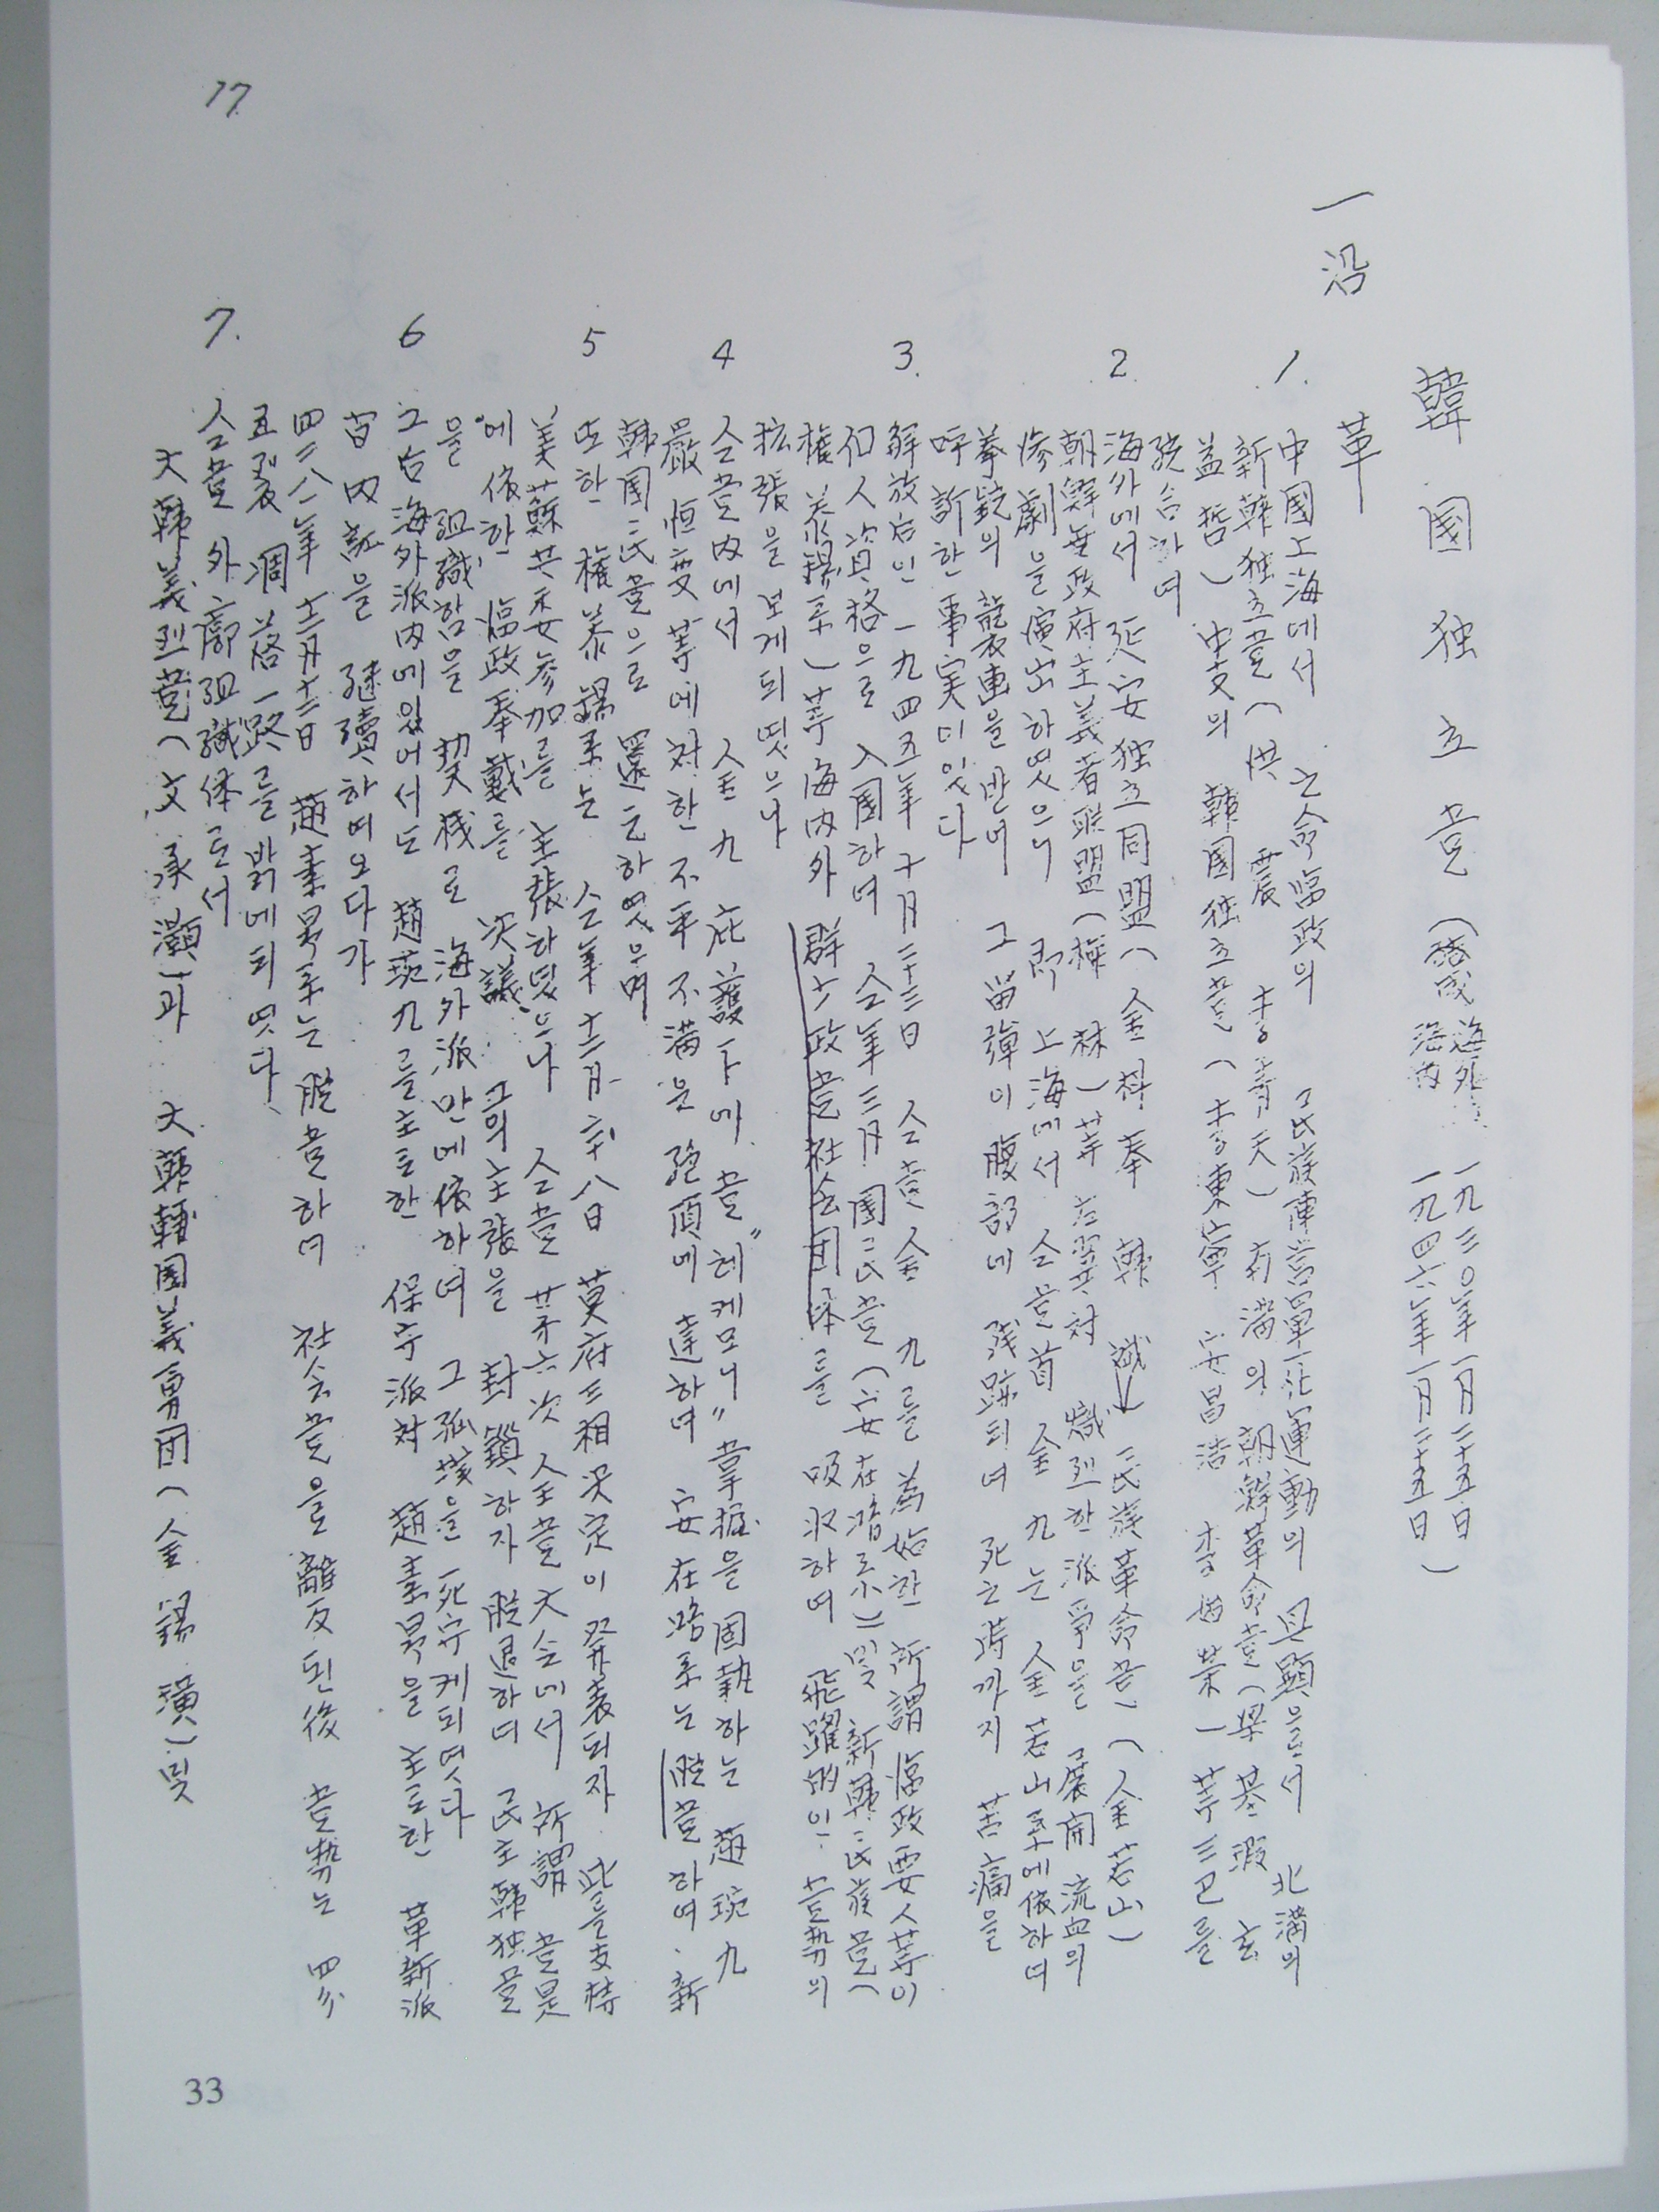 韓國独立党（結成 海外 一九三〇年一月二十五日
海內 一九四六年一月二十五日）
一 沿革
1. 中國上海에서 亡命臨政의 民族陣営單一化運動의 具顯으로서 北満의
新韓独立党（洪震 李青天）南満의 朝鮮革命党（梁基瑕 玄
益哲）中支의 韓國独立党（李東寧 安昌浩 李始榮）等三巴를
統合하여
2. 海外에서 延安独立同盟（金科奉 韓 ）民族革命党（金若山）
朝鮮無政府主義者聯盟（柳林）等 左翼対 熾烈한 派爭을 展開 流血의
惨劇을 演出하였으니 即 上海에서 仝党首 金九는 金若山系에依하여
拳銃의 襲擊을 반어 그 留弾이 腹部에 残跡되여 死亡時까지 苦痛을
呼訴한 事実이있다
3. 解放后인 一九四五年十月二十三日 仝党 金九를 為始한 所謂 臨政要人等이
個人資格으로 入國하여 仝年三月 國民党（安在鴻系）및 新韓民族党（
權泰錫系）等海內外 群少政党社会団体를 吸収하여 飛躍的인 党勢의
拡張을 보게되엿으나
4. 仝党內에서 金九 庇護下에 党"헤게모니"掌握을 固執하는 趙琬九
嚴恒燮 等에対한 不平不満은 絶頂에 達하여 安在鴻系는 脱党하여 新
韓國民党으로 還元하엿으며
5 또한 權泰錫系는 仝年十二月二十八日 莫府三相決定이 発表되자 此를支持
美蘇共委参加를 主張하엿으나 仝党 第六次 全党大会에서 所謂 党是
에 依한 臨政奉戴를 決議 그의主張을 封鎖하자 脱退하여 民主韓独党
을 組織함을 契機로 海外派만에依하여 그 孤塁을 死守케되엿다
6 그后 海外派內에있어서도 趙琬九를主로한 保守派対 趙素昻을 主로한 革新派
苗內訌을 継續하여오다가
四二八一年 十二月十二日 趙素昻系는 脱党하여 社会党을 離反된後 党勢는 四分
五裂 凋落一路를 밝게되엿다
7. 仝党 外廓組織体로서
大韓義烈党（文承灝）과 大韓輔國義勇団（金錫潢）및
17
33